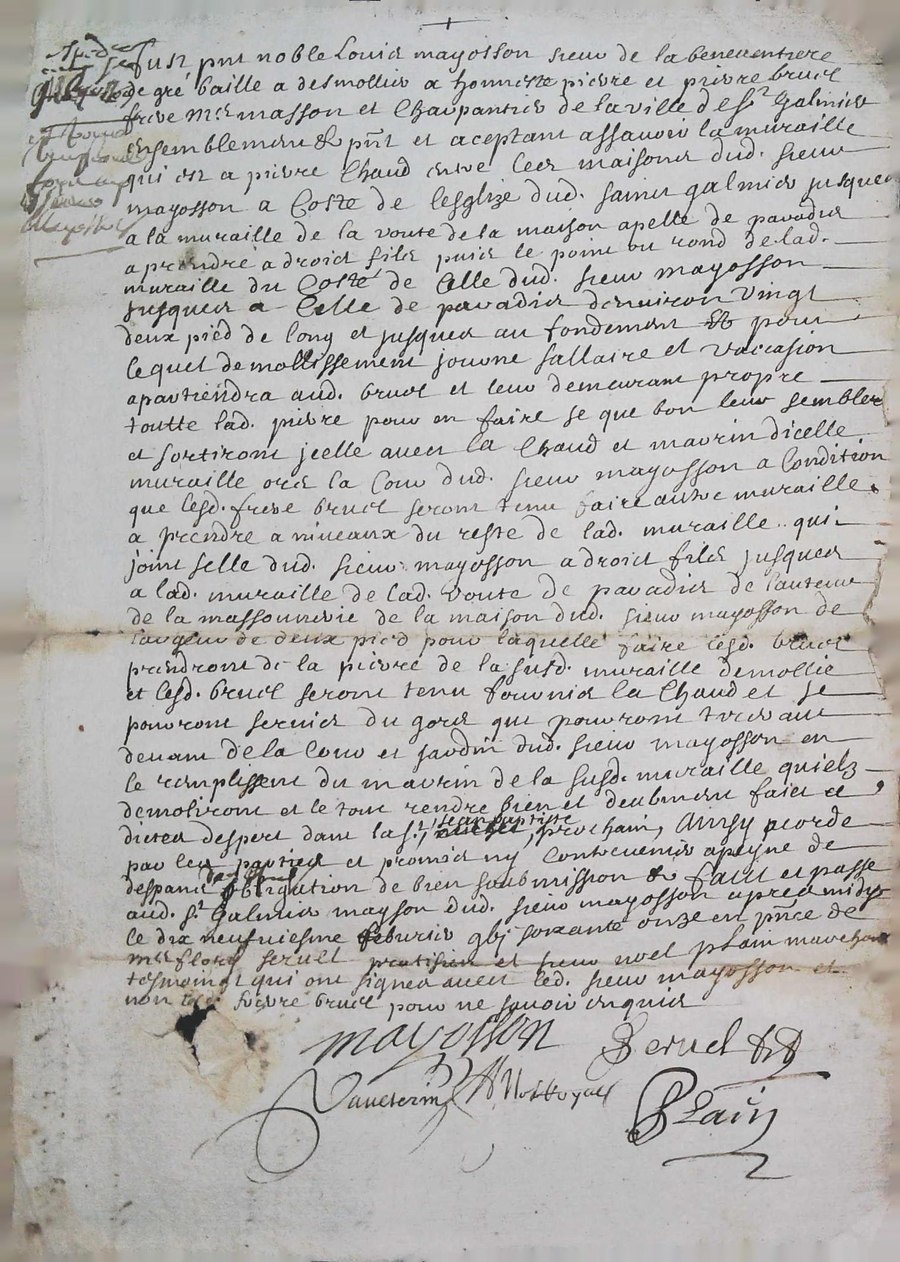 Fust pnt noble Louis mayosson sieur de la beneventiere
de gré baille a desmollir a honneste pierre et pierre bruel
frere Mes masson et Charpantier de la ville de St Galmier
ensemblement pnt et aceptant assavoir la muraille
qui est a pierre Chaud entre les maisons dud. sieur
mayosson a Costé de lesglize dud. sainct galmier jusques
a la muraille de la voute de la maison apelle de paradis
a prendre a droict fils puis le point ou rond de lad.
muraille du Costé de Celle dud. sieur mayosson
jusques a Celle de paradis denviron vingt
deux pied de long et jusques au fondement et pour
lequel demollissement journe sallaire et vaccasion
apartiendra aud. bruel et leur demeurant propre
toutte lad. pierre pour en faire se que bon leur semblera
et sortiront jcelle avec la Chaud et marrin dicelle
muraille la Cour dud. sieur mayosson a Condition
que lesd. frere bruel seront tenu faire autre muraille
a prendre a niveaux du reste de lad. muraille qui
joint selle dud. sieur mayosson a droict fils jusques
a lad. muraille de lad. voute de paradis de lauteur
de la massonnerie de la maison dud. sieur mayosson de
largeur de deux pied pour laquelle faire lesd. bruel
prendront de la pierre de la susd. muraille demollie
et lesd. bruel seront tenu fournir la Chaud et se
pourront servir du gors qui pourront tirer au
devant de la Cour et jardin dud. sieur mayosson en
le remplissent du marrin de la susd. muraille quielz
demoliront et le tout rendre bien et deubment faict a
dictes despert dans la st jean baptiste prochain, Ainsy acorde
par les parties et promis ny Contrevenir a peyne de
despans obligation de bien soubmission & faict et passe
aud. St Galmier mayson dud. sieur mayosson apres midy
le dix neufviesme feburier gbj soixante onze en pnce de
Mes flory seruel pratisien et sieur noel plain marchant
tesmoings qui ont signes avec led. sieur mayosson et
non lesd. frere bruel pour ne savoir enquis
mayosson
Seruel
Plain
Not Royal